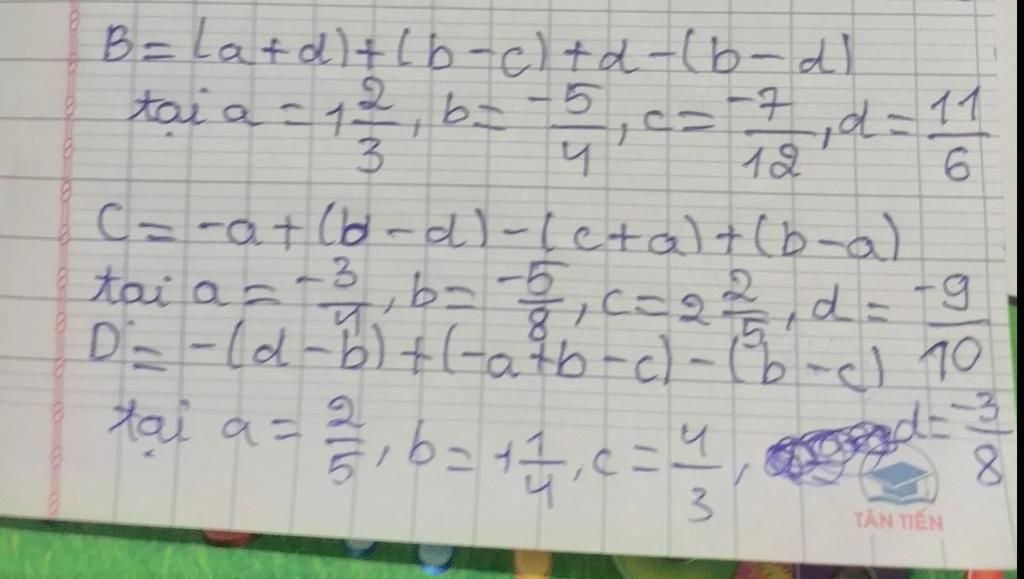 B = (a + d) + (b - c) + d - (b - d)
tại a = 1 2/3, b = -5/4, c = -7/12, d = 11/6
C = -a + (b - d) - (c + a) + (b - a)
tại a = -3/4, b = -5/8, c = 2 2/5, d = -9/10
D = -(d - b) + (-a + b - c) - (b - c)
tại a = 2/5, b = 1 1/4, c = 4/3, d = -3/8
TÂN TIẾN